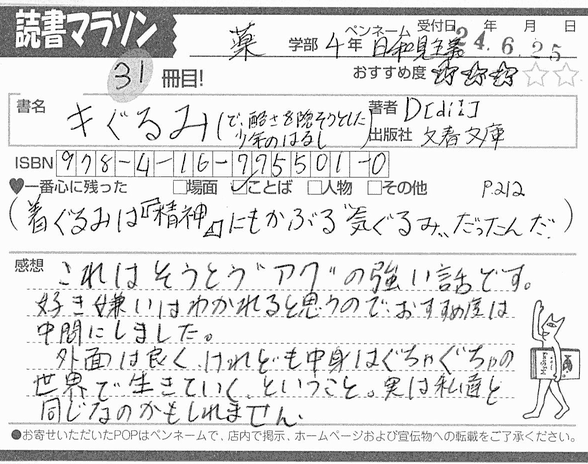 読書マラソン
薬 学部 4年 ペンネーム 日和見主義 受付日 年 月 日 24.6.25
31 冊目!
おすすめ度 ☆☆☆☆☆
書名 キぐるみ (で、醜さを隠そうとした少年のはなし)
著者 D[di:]
出版社 文春文庫
ISBN 978-4-16-775501-0
♥一番心に残った □場面 ☑ことば □人物 □その他 P.212
(着ぐるみは『精神』にもかぶる"気ぐるみ"だったんだ。)
感想 これはそうとう"アク"の強い話です。
好き嫌いはわかれると思うので、おすすめ度は
中間にしました。
外面は良く、けれども中身はぐちゃぐちゃの
世界で生きていく、ということ。実は私達と
同じなのかもしれません.
●お寄せいただいたPOPはペンネームで、店内で掲示、ホームページおよび宣伝物への転載をご了承ください。